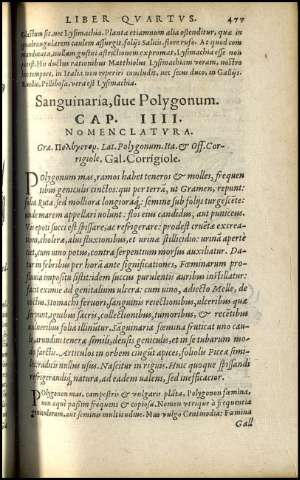 LIBER QVARTVS. 477
Gallium sit an: Lysimachia. Planta etiamnum alia ostenditur, quæ in
quadrangularem caulem assurgit, folijs Salicis, flore rufo. At quod com
manducata, nullam gustui astrictionem exprom at, Lysimachia esse non
potest. Ho ductus rationibus Matthiolus Lysimachiam veram, nostro
hoc tempore, in Italia non reperiri concludit, nec secum duco, in Gallijs.
Ruelij, Pellhosa, vera est Lysimachia.
Sanguinaria, siue Polygonum.
CAP. IIII.
NOMENCLATVRA.
Græ. Πολύγονον. Lat. Polygonum. Ita. & Off. Cor-
rigiole. Gal. Corrigiole.
Polygonum mas, ramos habet teneros & molles, frequen
tibus geniculis cinctos: qui per terrã, ut Gramen, repunt:
folia Rutæ, sed molliora longioraq;: semine sub folijs turgescẽte:
unde marem appellari uolunt: flos eius candidus, aut puniceus.
Vis epoti succi est spissare, ac refrigerare: prodest cruẽta excrean
tibus, cholera, alui fluxionibus, et urinæ stillicidio: urinã aperte
ciet, cum uino potus, contra serpentum morsus auxiliatur. Da-
tur in febribus per horã ante significationes, Fœminarum pro-
fluuia
succus purulentis auribus instillatur:
facit eximie ad genitalium ulcera: cum uino, adiecto Melle, de
coctus. Stomachi feruori, sanguinis reiectionibus, ulceribus quæ
serpunt, ignibus sacris, collectionibus, tumoribus, & recẽtibus
uulneribus folia illinitur. Sãguinaria fœmina fruticat uno cau-
le, arundini tenerae similis, densis geniculis, et in se tubarum mo-
do farctis. Articulos in orbem cingũt apices, foliolis Piceæ simi-
les: radicis nullus usus. Nascitur in riguis. Huic quoque spissandi
refrigerandiq; natura, ad eadem ualens, sed inefficacior.
Polygonum mas, campestris & vulgaris plãta, Polygonum fœmina,
non æqui passim frequens & copiosa. Nomen vtrique à frequentia
genuum, aut seminis multitudine. Mas vulgo Centinodia: Fœmina
Gall